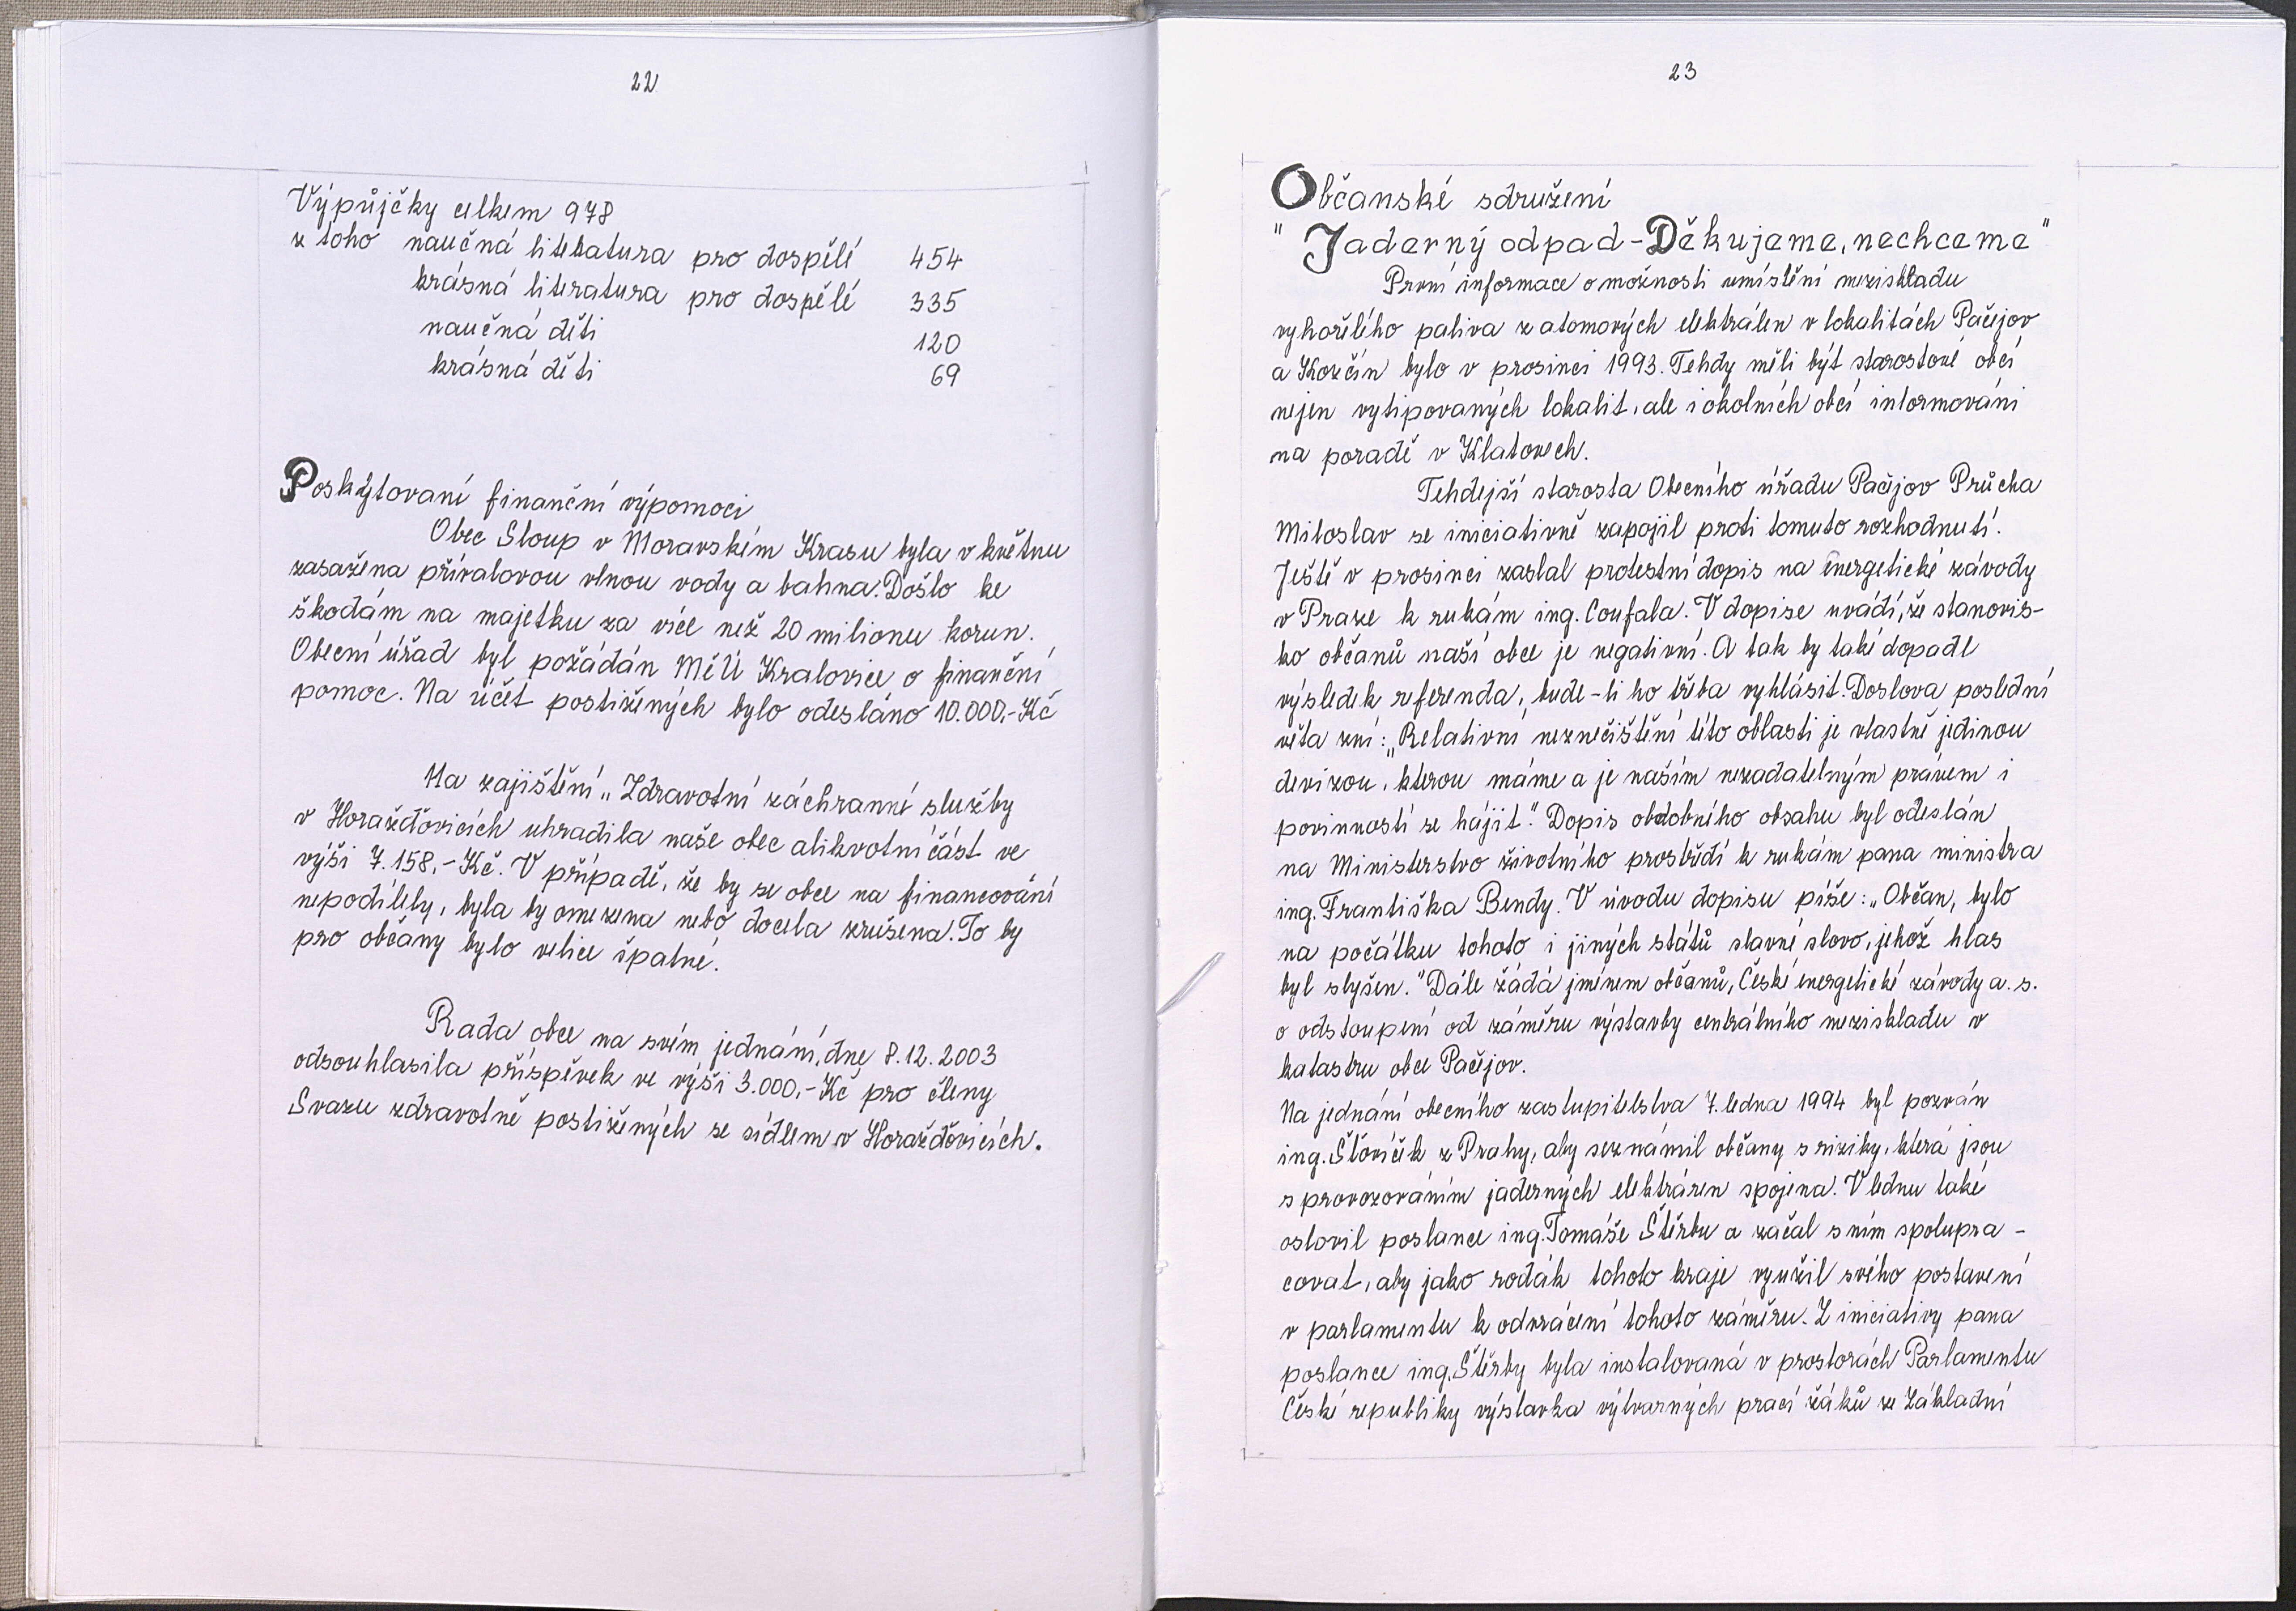 22
Výpůjčky celkem 978
z toho naučná literatura pro dospělé 454
krásná literatura pro dospělé 335
naučná děti 120
krásná děti 69
Poskytovaní finanční výpomoci
Obec Sloup v Moravském Krasu byla v květnu
zasažena přívalovou vlnou vody a bahna. Došlo ke
škodám na majetku za více než 20 milionu korun.
Obecní úřad byl požádán MěÚ Kralovice o finanční
pomoc. Na účet postižených bylo odesláno 10.000,-Kč
Na zajištění „Zdravotní záchranné služby
v Horažďovicích uhradila naše obec alikvotní část ve
výši 7.158,-Kč. V případě, že by se obce na financování
nepodílely, byla by omezena nebo docela zrušena. To by
pro občany bylo velice špatné.
Rada obce na svém jednání, dne 8.12.2003
odsouhlasila příspěvek ve výši 3.000,-Kč pro členy
Svazu zdravotně postižených se sídlem v Horažďovicích.
23
Občanské sdružení
" Jaderný odpad - Děkujeme, nechceme "
První informace o možnosti umístění meziskladu
vyhořelého paliva z atomových elektrálen v lokalitách Pačejov
a Kozčín bylo v prosinci 1993. Tehdy měli být starostové obcí
nejen vytipovaných lokalit, ale i okolních obcí informováni
na poradě v Klatovech.
Tehdejší starosta Obecního úřadu Pačejov Průcha
Miloslav se iniciativně zapojil proti tomuto rozhodnutí.
Ještě v prosinci zaslal protestní dopis na energetické závody
v Praze k rukám ing. Coufala. V dopise uvádí, že stanovis-
ko občanů naší obce je negativní. A tak by také dopadl
výsledek referenda, bude-li ho třeba vyhlásit. Doslova poslední
věta zní: „Relativní neznečištění této oblasti je vlastně jedinou
devizou, kterou máme a je naším nezadatelným právem i
povinností se hájit." Dopis obdobného obsahu byl odeslán
na Ministerstvo životního prostředí k rukám pana ministra
ing. Františka Bendy. V úvodu dopisu píše: „Občan, bylo
na počátku tohoto i jiných států slavné slovo, jehož hlas
byl slyšen." Dále žádá jménem občanů, České energetické závody a.s.
o odstoupení od záměru výstavby centrálního meziskladu v
katastru obce Pačejov.
Na jednání obecního zastupitelstva 7. ledna 1994 byl pozván
ing. Šťovíček z Prahy, aby seznámil občany s riziky, která jsou
s provozováním jaderných elektráren spojena. V lednu také
oslovil poslance ing. Tomáše Štěrbu a začal s ním spolupra-
covat, aby jako rodák tohoto kraje využil svého postavení
v parlamentu k odvrácení tohoto záměru. Z iniciativy pana
poslance ing. Štěrby byla instalovaná v prostorách Parlamentu
České republiky výstavka výtvarných prací žáků ze Základní